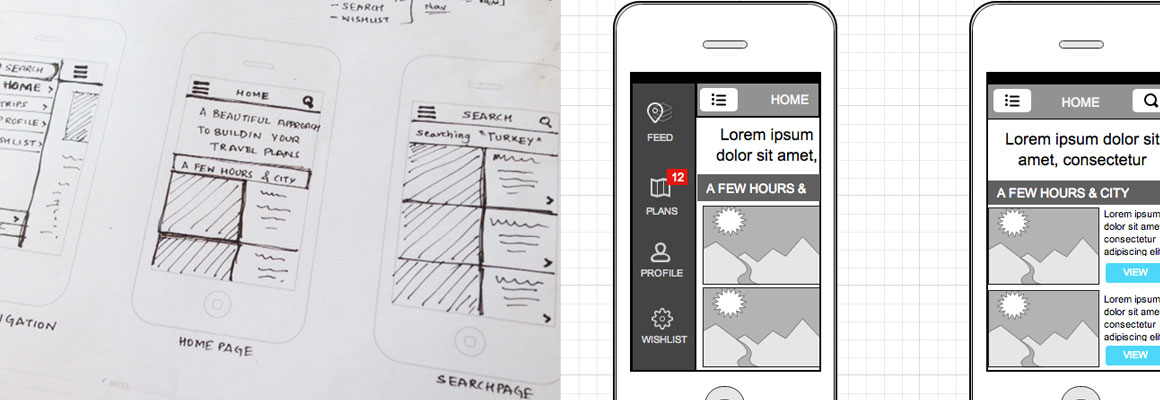 - SEARCH
- WISHLIST
Nav
SEARCH
HOME >
TRIPS >
PROFILE >
SHLIST >
IGATION
HOME
A BEAUTIFUL APPROACH
TO BUILDIN YOUR
TRAVEL PLANS
A FEW HOURS & CITY
HOME PAGE
SEARCH
searching "TURKEY"
SEARCHPAGE
FEED
12
PLANS
PROFILE
WISHLIST
HOME
Lorem ipsum
dolor sit amet,
A FEW HOURS &
HOME
Lorem ipsum dolor sit
amet, consectetur
A FEW HOURS & CITY
Lorem ipsum
dolor sit ame
consectetur
adipiscing elit
VIEW
Lorem ipsum
dolor sit ame
consectetur
adipiscing elit
VIEW